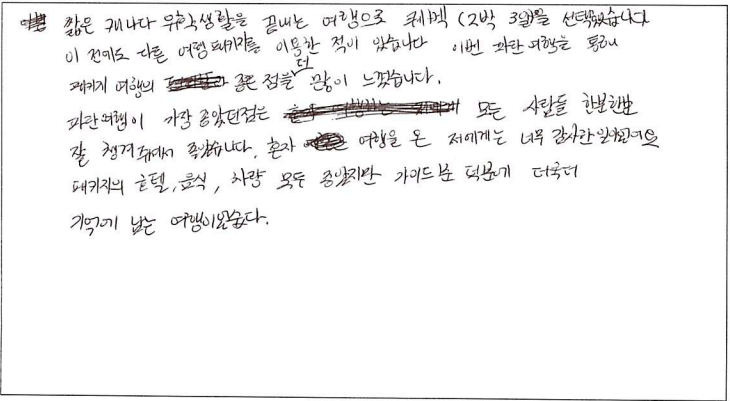 짧은 캐나다 유학생활을 끝내는 여행으로 퀘벡 (2박 3일)을 선택했습니다
이 전에도 다른 여행 패키지를 이용한 적이 있습니다 이번 파란 여행을 통해
패키지 여행의 좋은 점을 더 많이 느꼈습니다.
파란여행이 가장 좋았던점은 모든 사람들 한분한분
잘 챙겨주셔서 좋았습니다. 혼자 여행을 온 저에게는 너무 감사한 일이였어요
패키지의 호텔, 음식, 차량 모두 좋았지만 가이드분 덕분에 더욱더
기억에 남는 여행이였습니다.